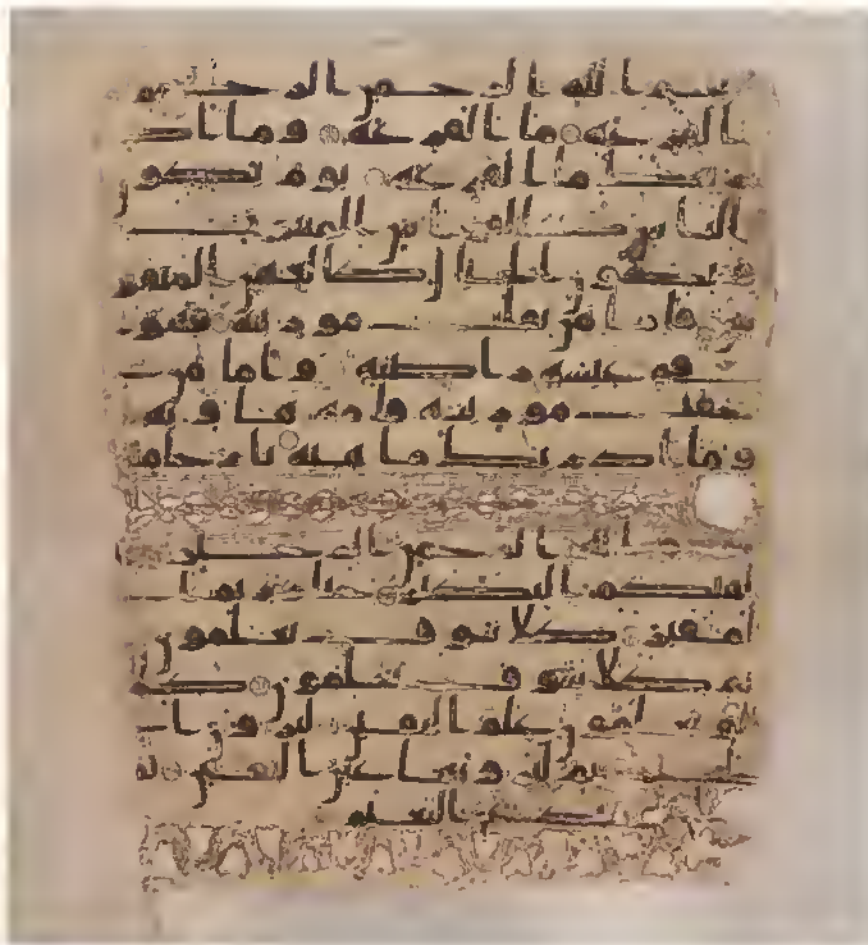 بسم الله الرحمن الرحيم
القرعه ما القرعه وما اد
ريك ما القرعه يوم يكون
الناس كالفراش المبثوث
وتكون الجبال كالعهن المنفو
ش فاما من ثقلت موزينه فهو
في عيشه راضيه واما من
خفت موزينه فامه هاويه
وما ادريك ما هيه نار حاميه
بسم الله الرحمن الرحيم
الهكم التكاثر حتى زرتم
المقابر كلا سوف تعلمون
ثم كلا سوف تعلمون كلا
لو تعلمون علم اليقين لترون ا
لجحيم ثم لترونها عين اليقين ثم
لتسئلن يومئذ عن النعيم